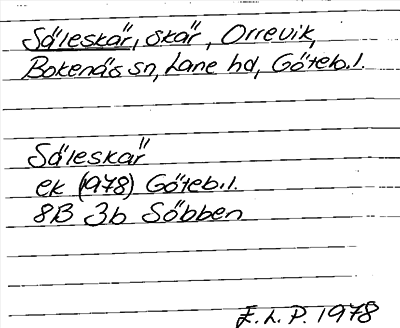 Såleskär, skär, Orrevik,
Bokenäs sn, Lane hd, Göteb.l.
Såleskär
ek (1978) Göteb.l.
8B 3b Söbben
E.L.P. 1978